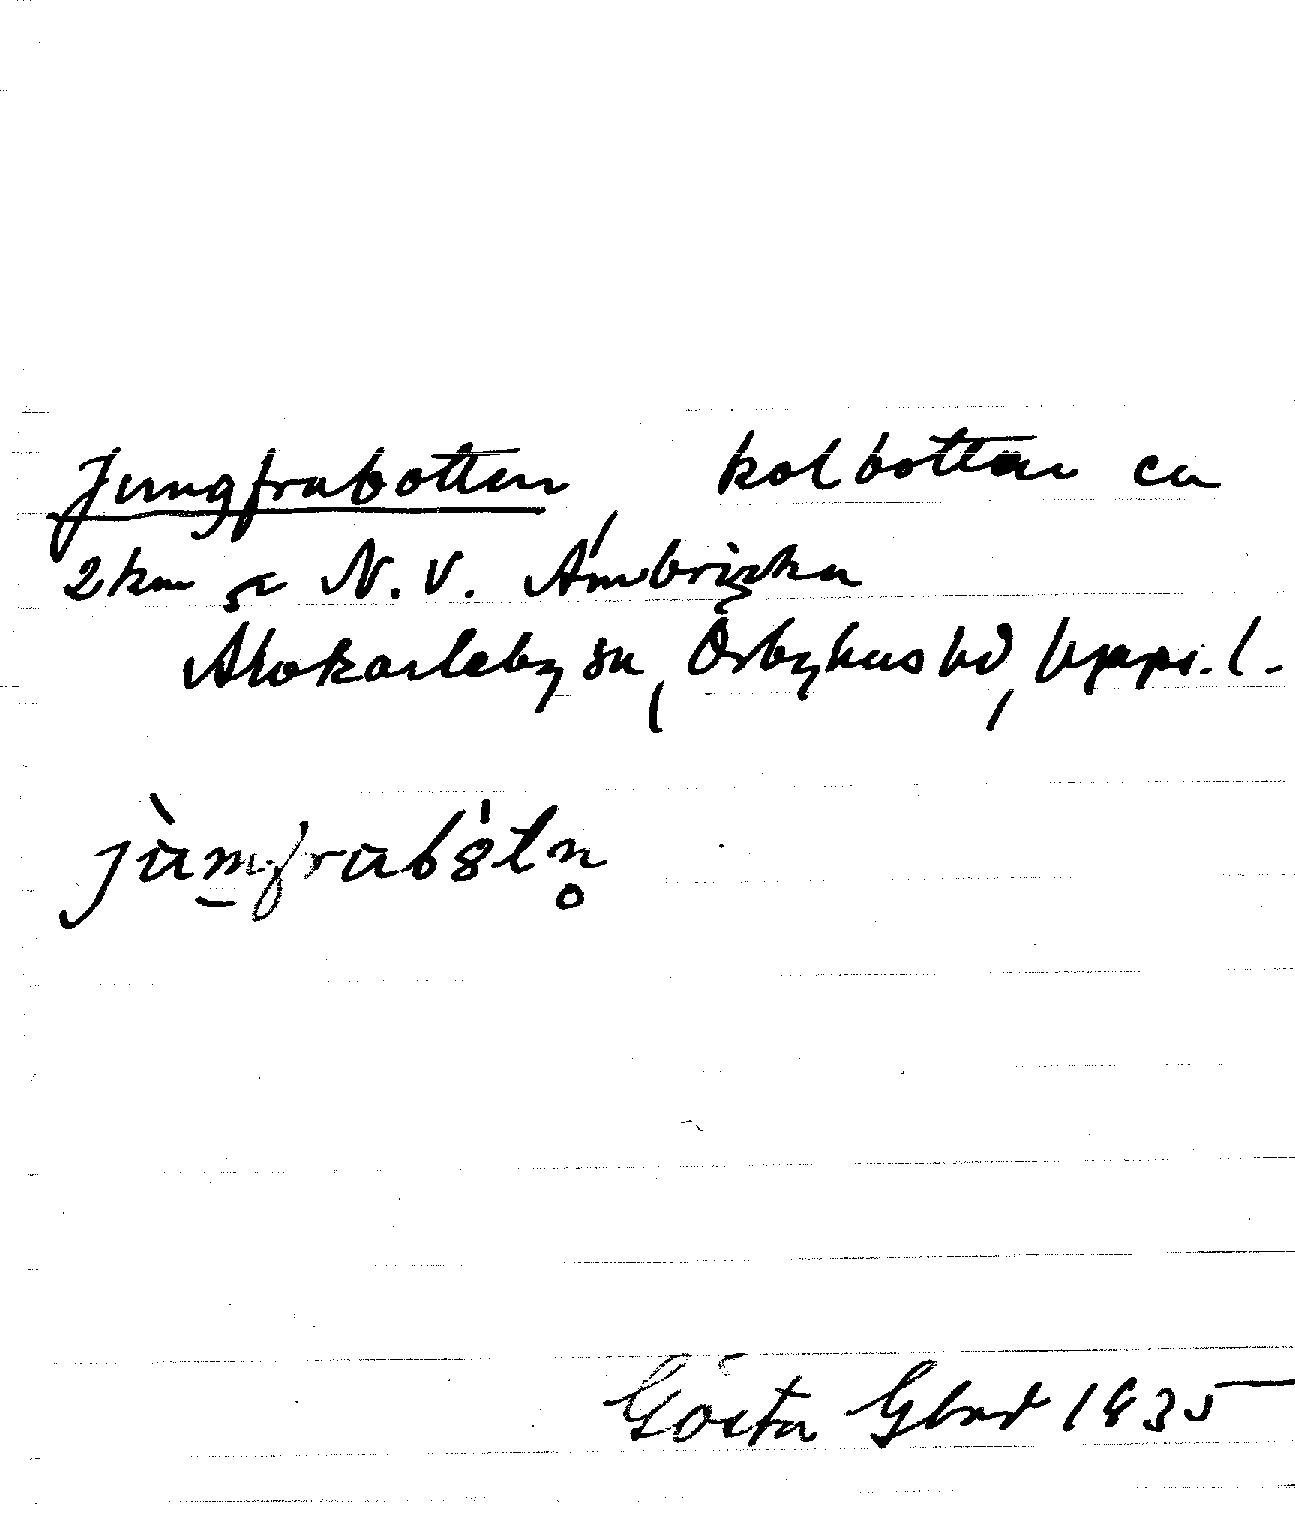 Jungfrubotten, kolbotten ca
2 km N.V. Ambricka
Älvkarleby sn, Örbyhus hd, Upps. l.
jùmfrubòtn̥
Gösta Glad 1935